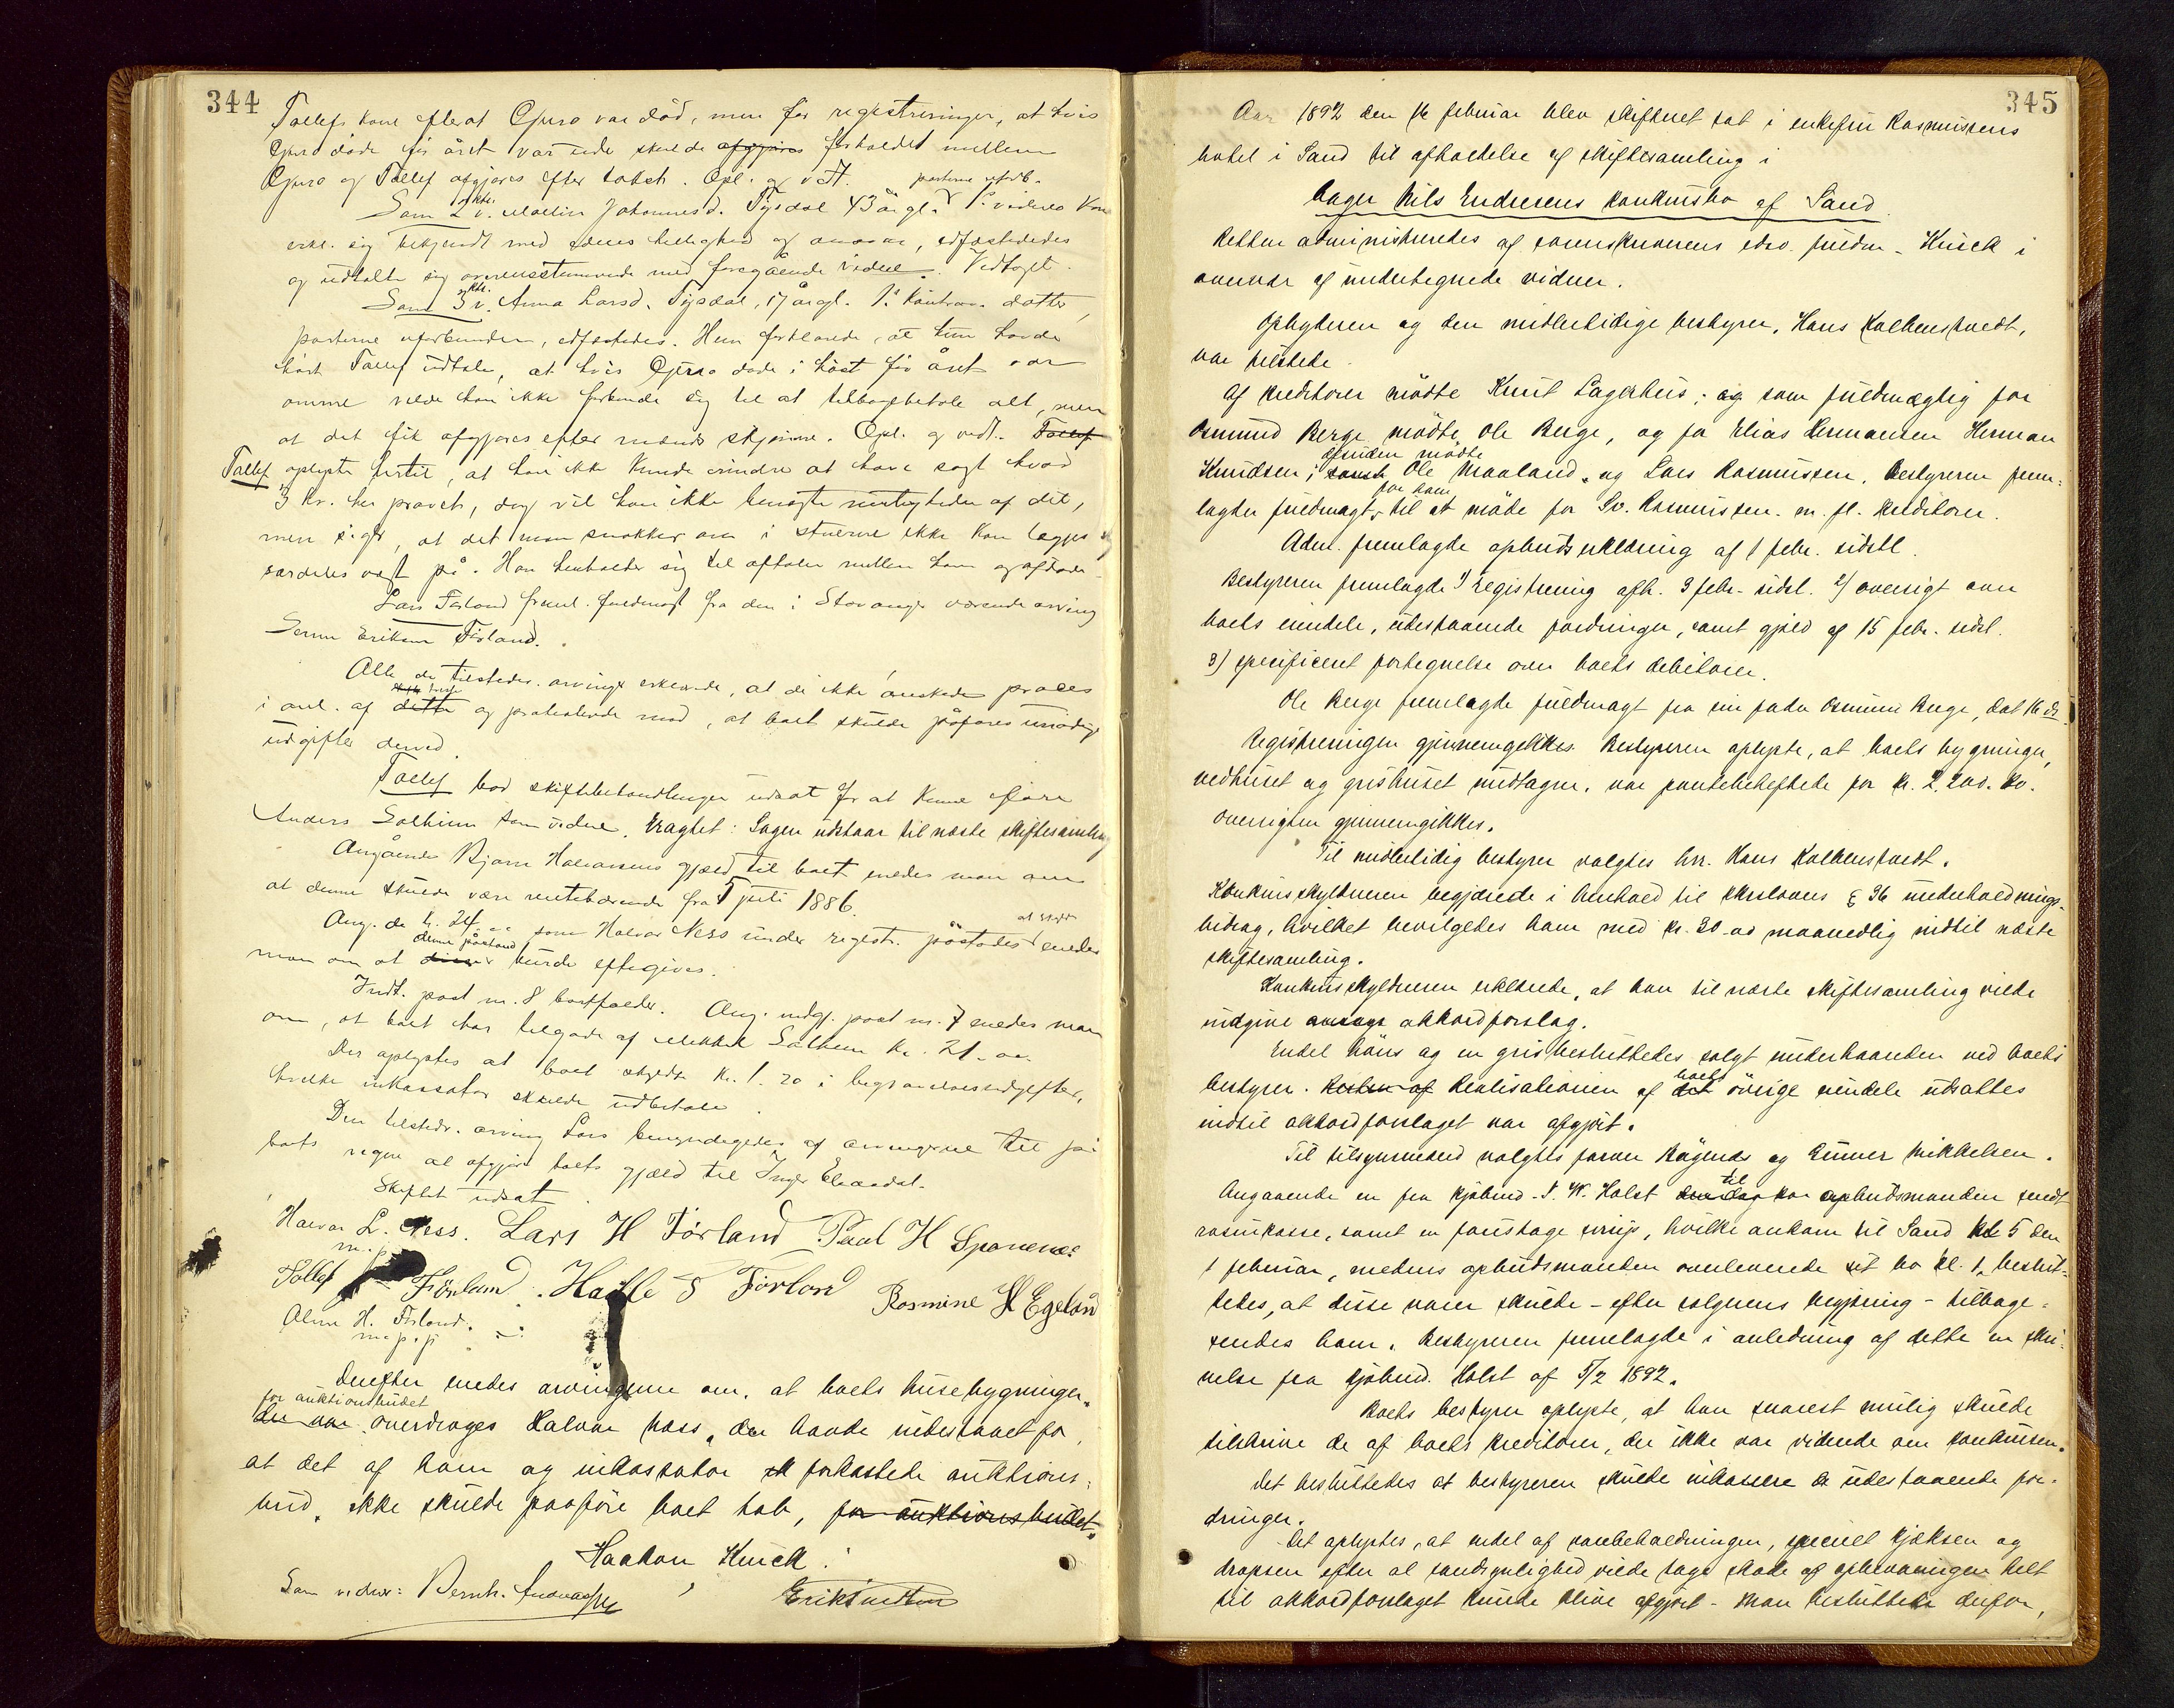 344
Tollefs kone efterat Gjuro var död, men för registreringen, at hvis
Gjuro döde för året var ude skulde afgjöres forholdet mellem
Gjuro og Tollef afgjöres efter tabet. Opl. og vdt.
parterne uforb.
Som 2 v. Malin Johannesd. Tysdal 43 år gl. 1ste vidnes kone
erkl. sig bekjendt med edens hellighed og ansvar, edfæstedes
og udtalte sig overensstemmende med foregående vidne. Vedtaget.
Som 3 v. Anna Larsd. Tysdal, 17 år gl. datter,
parterne uforbunden, edfæstedes. Hun forklarede, at hun havde
hört Tollef udtale, at hvis Gjuro döde i höst för året var
omme vilde han ikke forbinde sig til at tilbagebetale alt, men
at det fik afgjöres efter mænds skjönne. Opl. og vedt. Tollef
Tollef oplyste hertil, at han ikke kunde erindre at have sagt hvad
3 v. har provet, dog vil han ikke benægte rigtigheden af det,
men siger, at det man snakker om i stuerne ikke kan lægges
særdeles vægt på. Han henholder sig til aftalen mellem ham og afdöde.
Lars Förland freml. fuldmagt fra den i Stavanger værende arving
Sernn Eriksen Förland.
Alle de tilstedev. arvinger erklærede, at de ikke önskede proces
i anl. af dette og protesterede mod, at boet skulde påføres unödige
udgifter derved.
Tollef bad skiftebehandlingen udsat for at kunne före
Anders Solheim som vidne. Eragtet: Sagen udstaar til næste skiftesamling
Angående Bjarne Halvorsens gjæld til boet enedes man om
at denne skulde være rentebærende fra 5 juli 1886.
Ang. de k. 24 som Halvor Næss under registr. påstodes enedes
denne påstand
man om at burde eftergives.
Indt. post nr. 8 bortfalder. Ang. udg. post nr. 7 enedes man
om, at boet har tilgode af Mikkel Solheim Kr. 21.00.
Der oplystes at boet skyldte Kr. 1.20 i begravelsesudgifter,
hvilke inkassator skulde udbetale.
Den tilstedev. arving Lars bemyndigedes af arvingerne til på
boets vegne at afgjöre boets gjæld til Inger
Skiftet udsat.
Halvor L. Ness. Lars H Förland Paul H
m.p.p.
Tollef Förland. Halle S Förland Rasmine H Egeland
Alina H. Förland.
m.p.p.
Derefter enedes arvingerne om, at boets husebygninger
for auktionsbudet
der var overdrages Halvor Næss, der havde indestaaet for,
at det af ham og inkassator forkastede auktions-
bud, ikke skulde paaföre boet tab, for auktionsbudet.
Haakon Krück.
Som vidner: Bernh. Erik
345
Aar 1892 den 16 februar blev skifteret sat i enkefru Rasmussens
hotel i Sand til afholdelse af skiftesamling i
bager Nils Endresens konkursbo af Sand
Retten administreredes af sorenskriverens edsv. fuldm. Krück i
overvær af undertegnede vidner.
Opbyderen og den midlertidige bestyrer, Hans Kolbenstvedt,
var tilstede.
Af kreditorer mödte Knut Lagerhus; og som fuldmægtig for
Osmund Berge mödte Ole Berge, og for Elias Hermansen Herman
desuden mödte
Knudsen; samt Ole Maaland og Lars Rasmussen. Bestyreren frem-
for ham
lagde fuldmagt til at möde for Sv. Rasmussen m. fl. kreditorer.
Adm. fremlagde opbudserklæring af 1 febr. sidstl.
Bestyreren fremlagde 1) registrering afh. 3 febr. sidstl. 2) oversigt over
boets eiendele, udestaaende fordringer, samt gjæld af 15 febr. sidstl.
3) specificeret fortegnelse over boets debitorer.
Ole Berge fremlagde fuldmagt fra sin fader Osmund Berge, dat 16 ds.
Registreringen gjennemgikkes. Bestyreren oplyste, at boets bygninger,
vedhuset og grishuset undtagen, var pantebeheftede for kr. 2,200.00.
Oversigten gjennemgikkes.
Til midlertidig bestyrer valgtes hrr. Hans Kolbenstvedt.
Konkursskyldneren begjærede i henhold til skiftelovens § 36 underholdnings-
bidrag, hvilket bevilgedes ham med kr. 30.00 maanedlig indtil næste
skiftesamling.
Konkursskyldneren erklærede, at han til næste skiftesamling vilde
indgive akkordforslag.
Endel höns og en gris besluttedes solgt underhaanden ved boets
boets
bestyrer. Resten af Realisationen af det övrige eiendele udsattes
indtil akkordforslaget var afgjort.
Til tilsynsmænd valgtes farver Bögends og Gunner Mikkelsen.
til
Angaaende en fra kjöbmd. P. W. Holst opbudsmanden sendt
rosinkasse, samt en fonstage sirup, hvilke ankom til Sand kl 5 den
1 februar, medens opbudsmanden overleverede sit bo kl. 1, beslut-
tedes, at disse varer skulde - efter sælgerens begjæring - tilbage-
sendes ham. Bestyreren fremlagde i anledning af dette en skri-
velse fra kjöbmd. Holst af 5/2 1892.
Boets bestyrer oplyste, at han snarest mulig skulde
tilskrive de af boets kreditorer, der ikke var vidende om konkursen.
Det besluttedes at bestyreren skulde inkassere de udestaaende for-
dringer.
Det oplystes, at endel af varebeholdningen, specielt kjæksen og
dropsen efter al sandsynlighed vilde tage skade af opbevaringen helt
til akkordforslaget kunde blive afgjort - Man besluttede derfor,